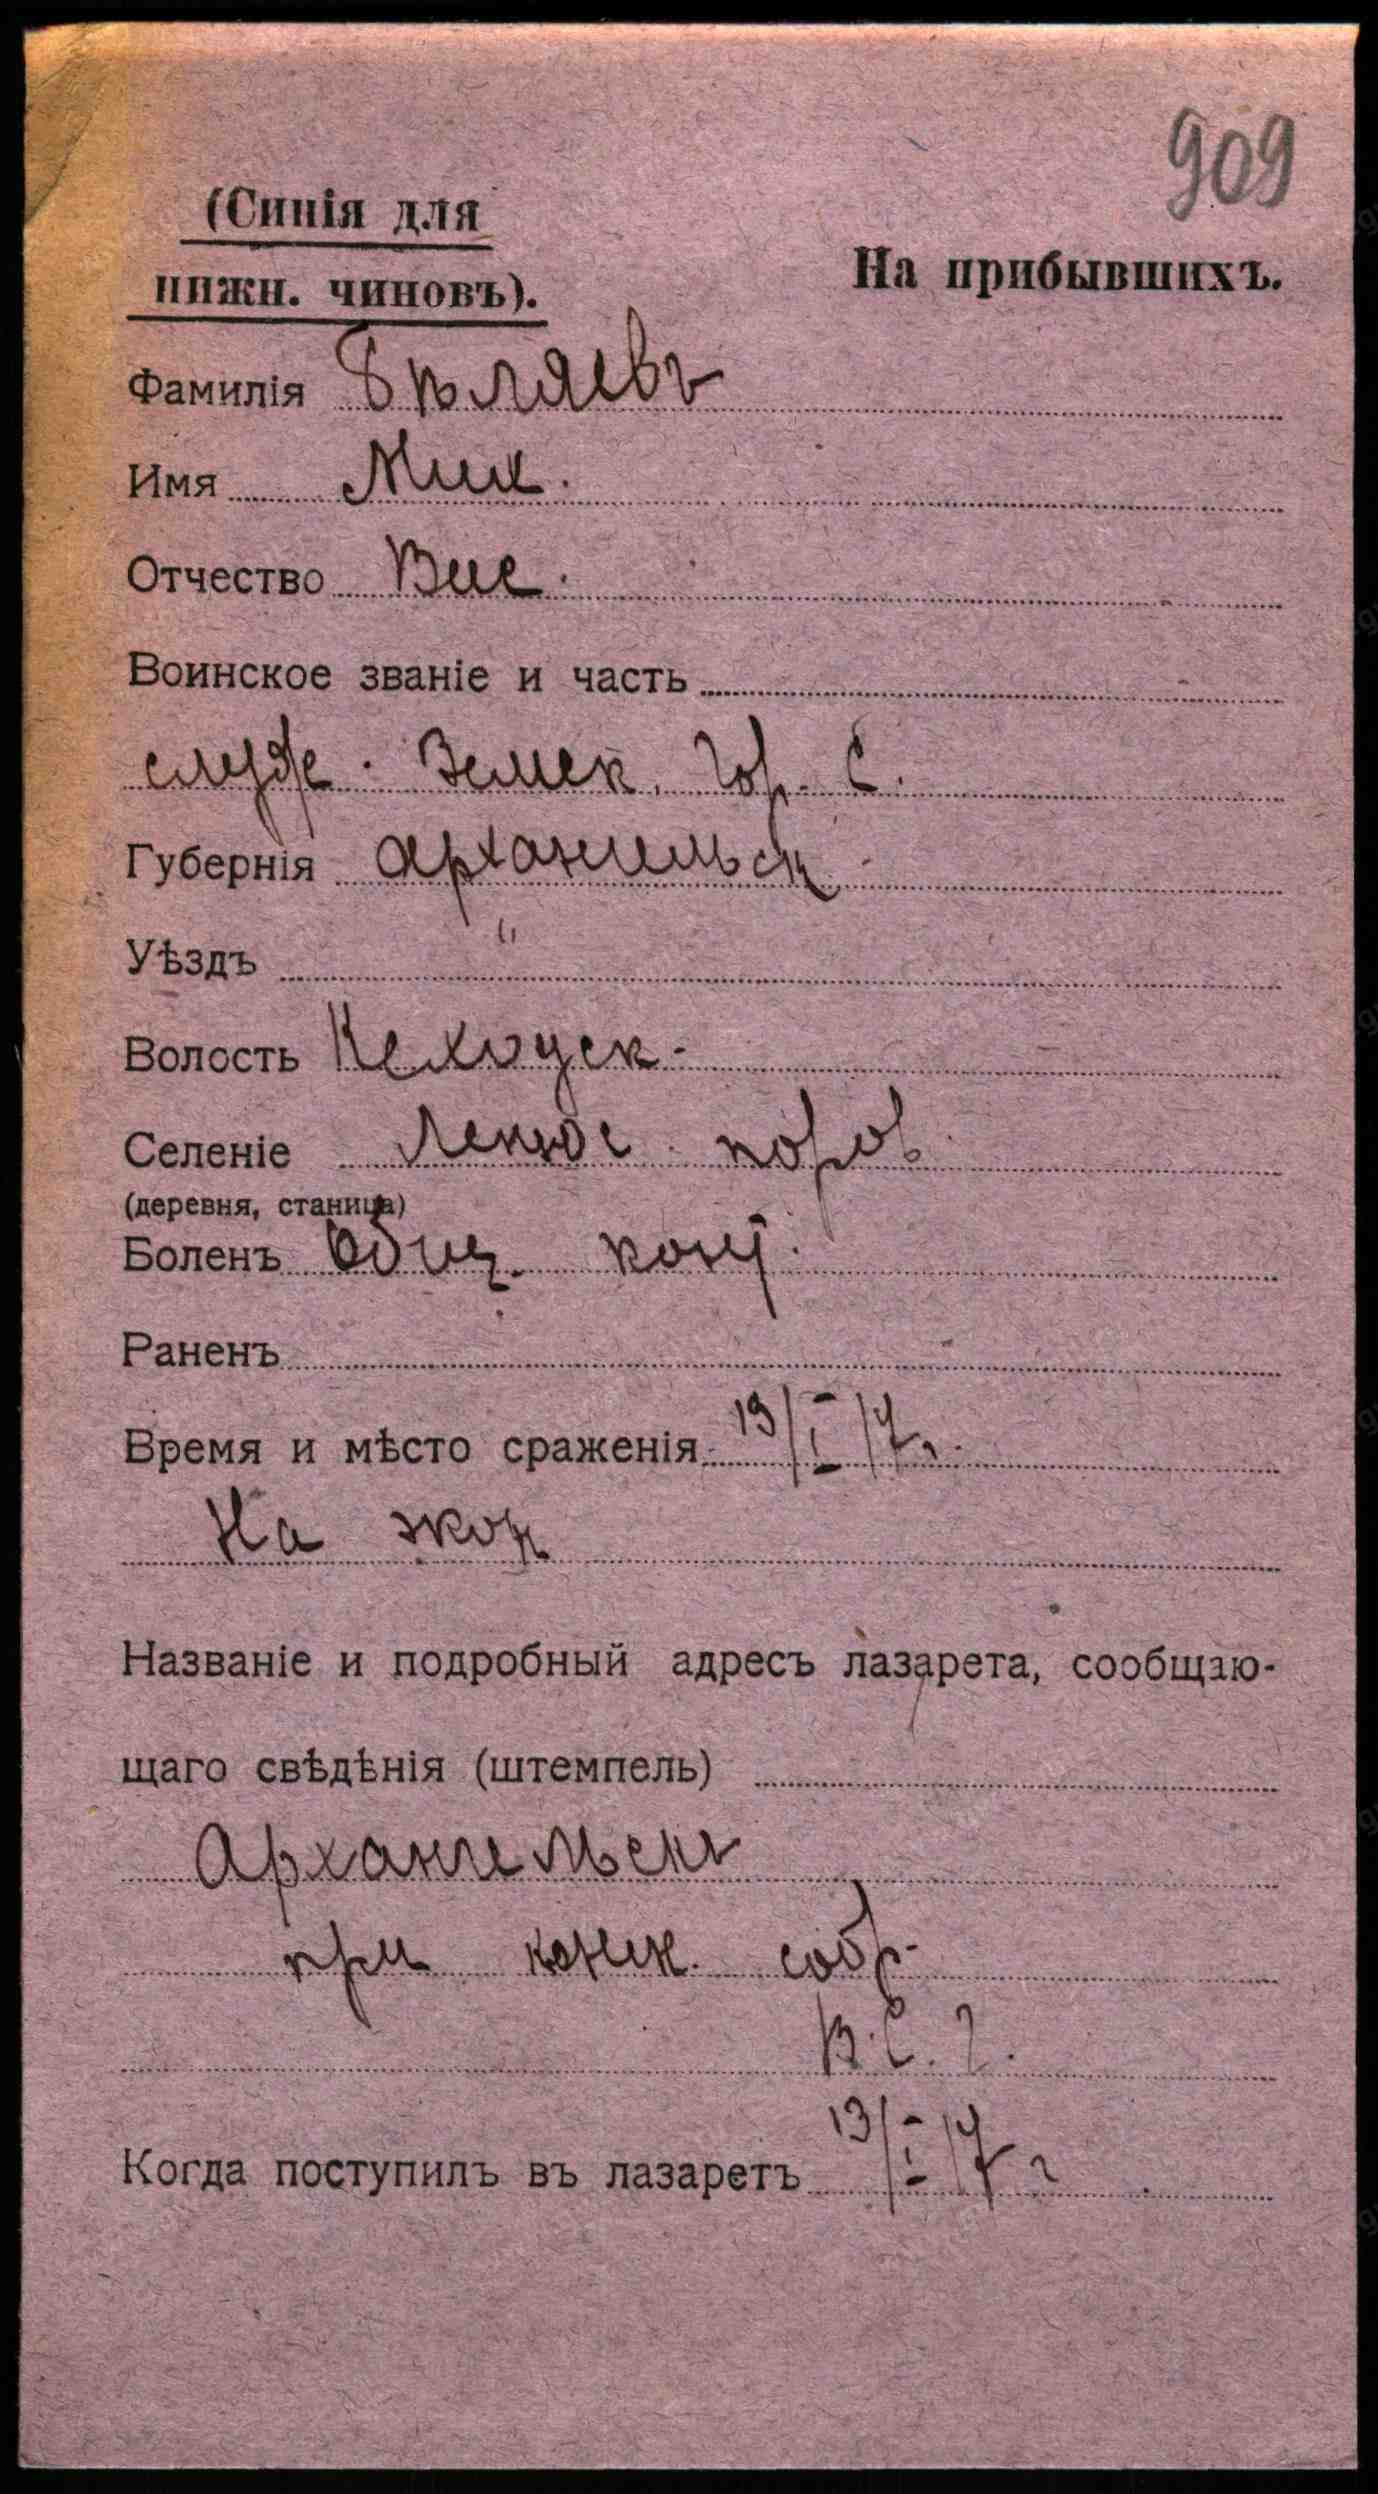 909
(Синія для
нижн. чиновъ).
На прибывшихъ.
Фамилія Бѣляевъ
Имя Мих.
Отчество Вис.
Воинское званіе и часть
служ. Земск. Гор. С.
Губернія Архангельск
Уѣздъ "
Волость Кехоцск-
Селеніе
(деревня, станица)
Боленъ Общ. конт.
Раненъ
Время и мѣсто сраженія 13/I 17 г.
На экон
Названіе и подробный адресъ лазарета, сообщаю-
щаго свѣдѣнія (штемпель)
Архангельскъ
при комм. собр.
В. С. Г.
Когда поступилъ въ лазаретъ 13/I 17 г